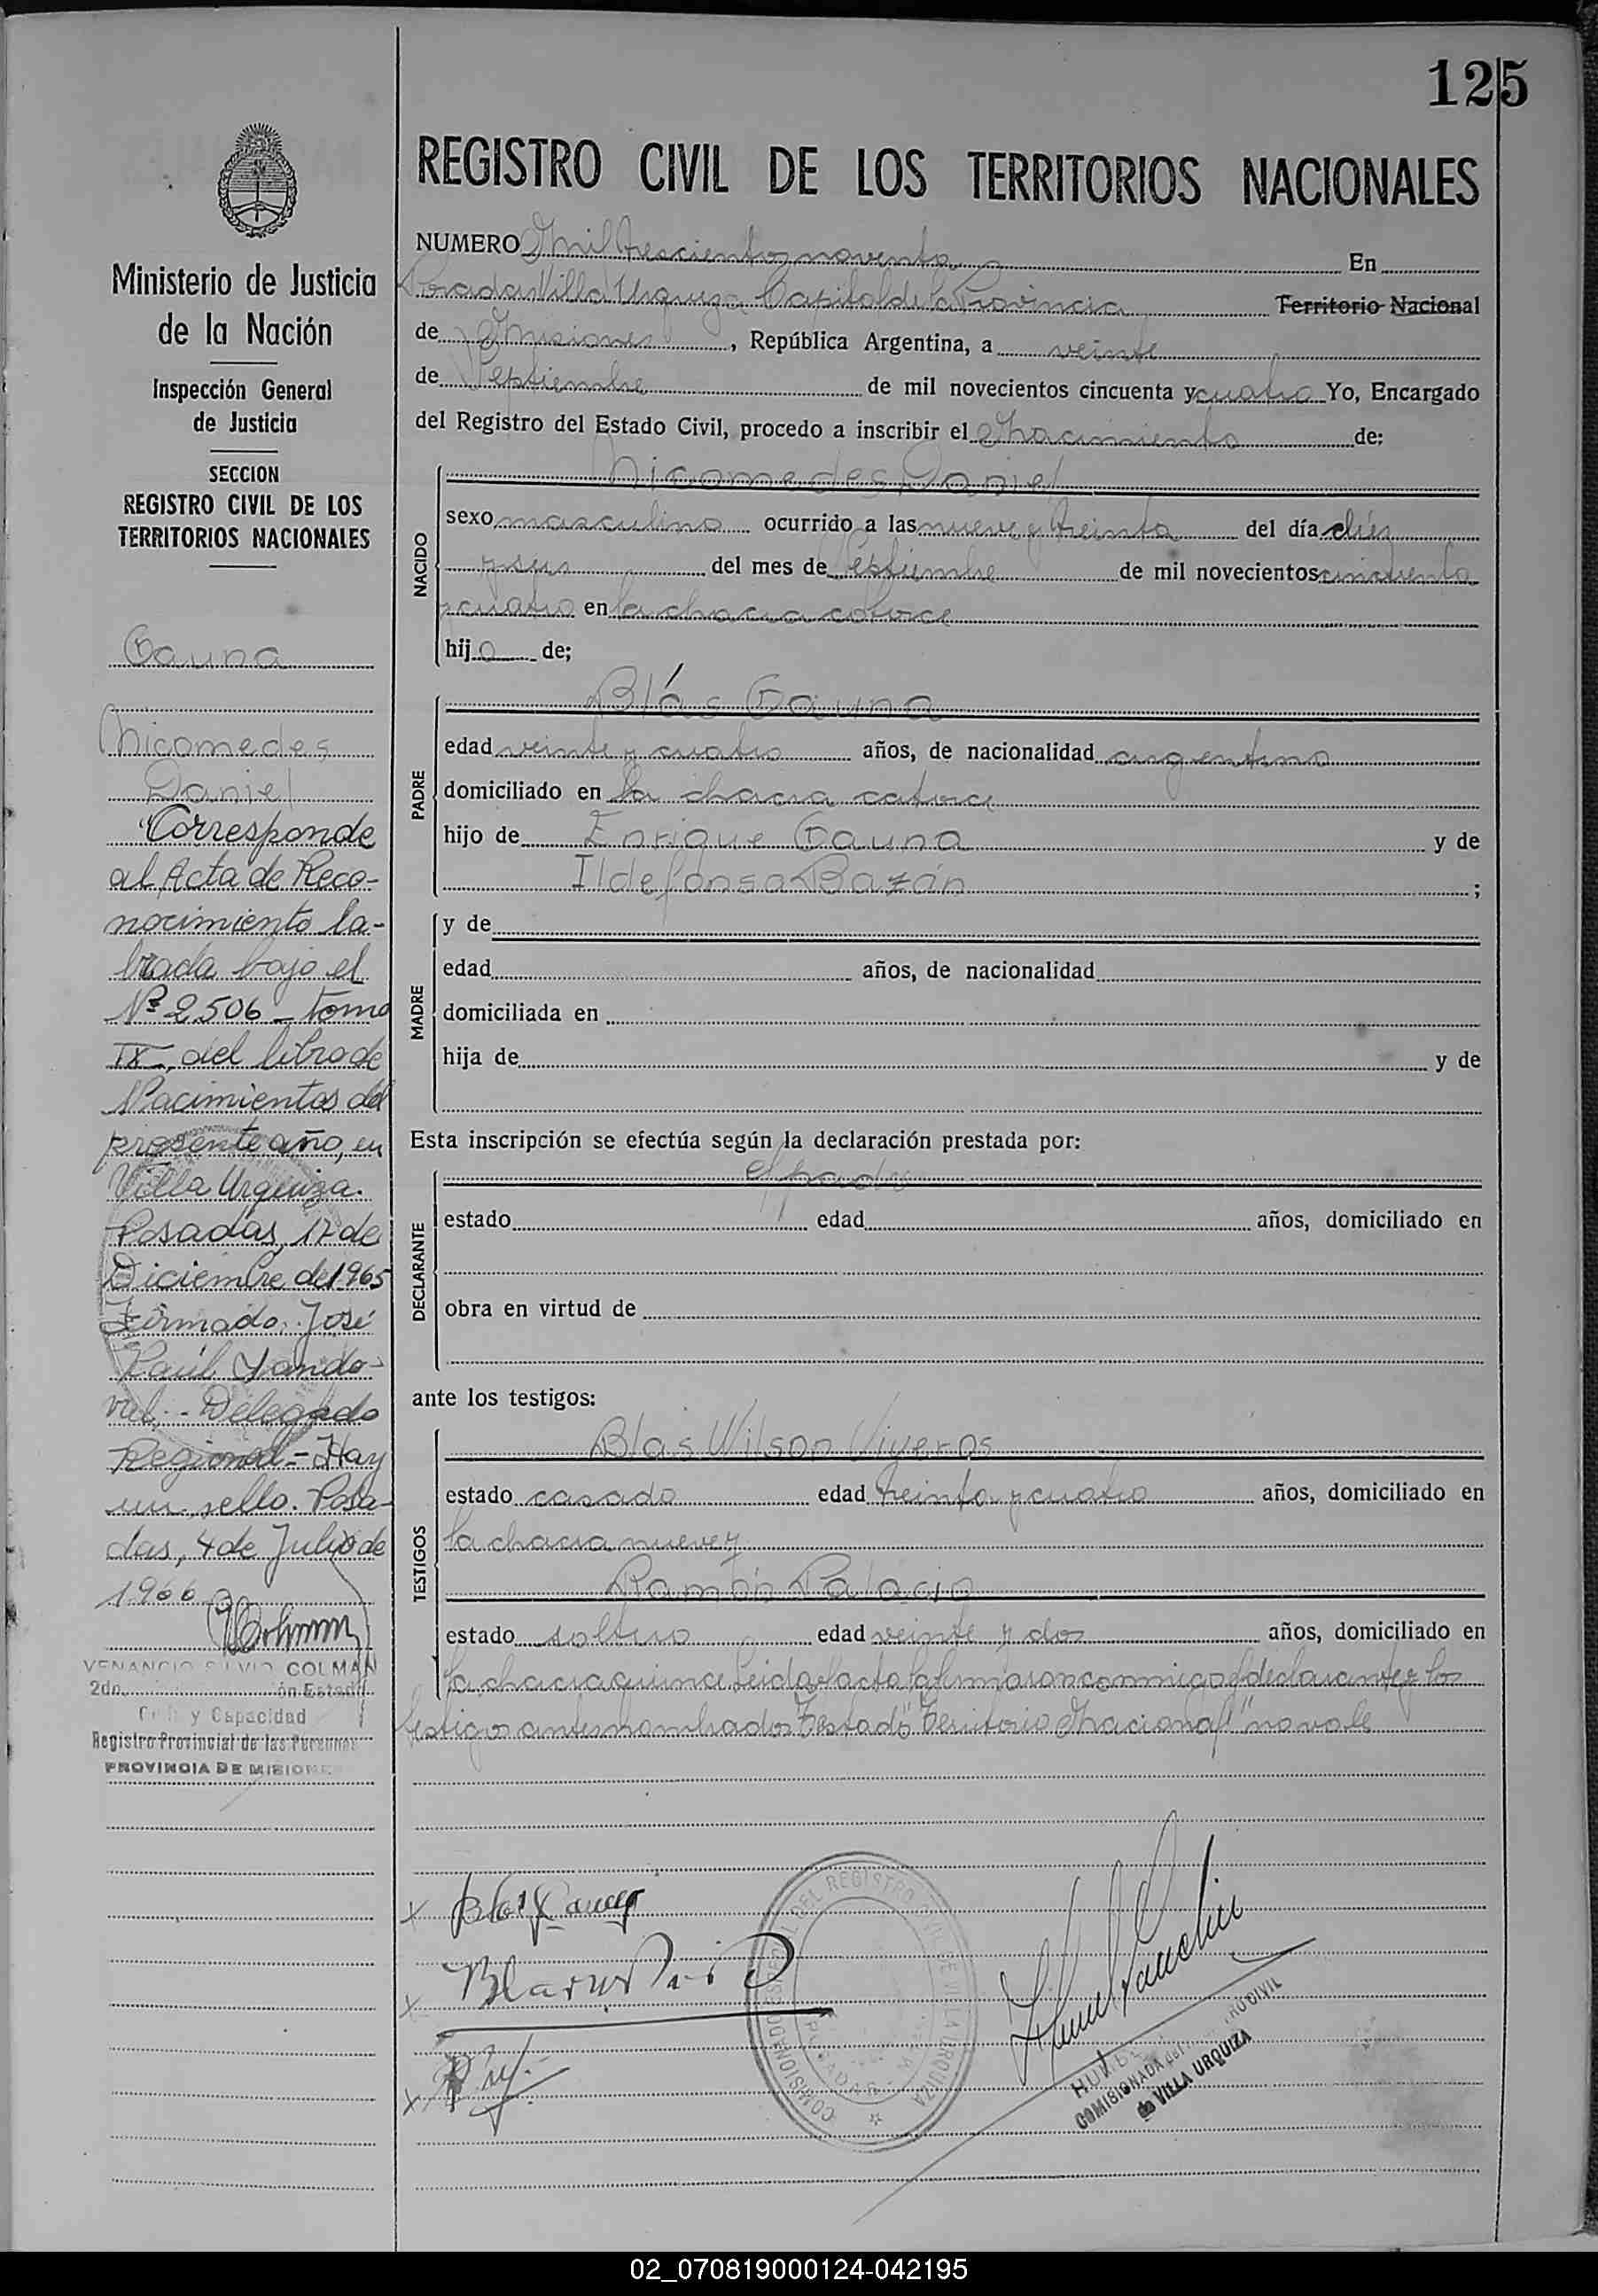 125
REGISTRO CIVIL DE LOS TERRITORIOS NACIONALES
Ministerio de Justicia
de la Nación
Inspección General
de Justicia
SECCION
REGISTRO CIVIL DE LOS
TERRITORIOS NACIONALES
Gauna
Nicomedes
Daniel
"Corresponde
al Acta de Reco-
nocimiento la-
brada bajo el
Nº 2506 - tomo
IX, del libro de
Nacimientos del
presente año, en
Villa Urquiza.
Posadas, 17 de
Diciembre de 1965
Firmado: José
Raúl Sando-
val - Delegado
Regional - Hay
un sello. Posa-
das, 4 de Julio de
1966
VENANCIO SILVIO COLMAN
2do. ón Estado
Civil y Capacidad
Registro Provincial de las Personas
PROVINCIA DE MISIONES
NUMERO mil trescientos noventa En
Posadas Villa Urquiza Capital de la Provincia Territorio Nacional
de Misiones, República Argentina, a veinte
de Septiembre de mil novecientos cincuenta y cuatro Yo, Encargado
del Registro del Estado Civil, procedo a inscribir el nacimiento de:
NACIDO
Nicomedes Daniel
sexo masculino ocurrido a las nueve y treinta del día diez
y seis del mes de Septiembre de mil novecientos cincuenta
y cuatro en la chacra catorce
hijo de;
PADRE
Blás Gauna
edad veinte y cuatro años, de nacionalidad argentino
domiciliado en la chacra catorce
hijo de Enrique Gauna y de
Ildefonsa Bazán ;
MADRE
y de
edad años, de nacionalidad
domiciliada en
hija de y de
Esta inscripción se efectúa según la declaración prestada por:
DECLARANTE
el padre
estado edad años, domiciliado en
obra en virtud de
ante los testigos:
TESTIGOS
Blas Wilson Viveros
estado casado edad treinta y cuatro años, domiciliado en
la chacra nueve y
Ramón Palacio
estado soltero edad veinte y dos años, domiciliado en
la chacra quince. Leida el acta la firmaron conmigo el declarante y los
testigos antes nombrados Testado "Territorio Nacional" no vale
Blas Gauna
COMISIONADO DEL REGISTRO CIVIL DE VILLA URQUIZA
POSADAS
COMISIONADA del REGISTRO CIVIL
de VILLA URQUIZA
02_070819000124-042195